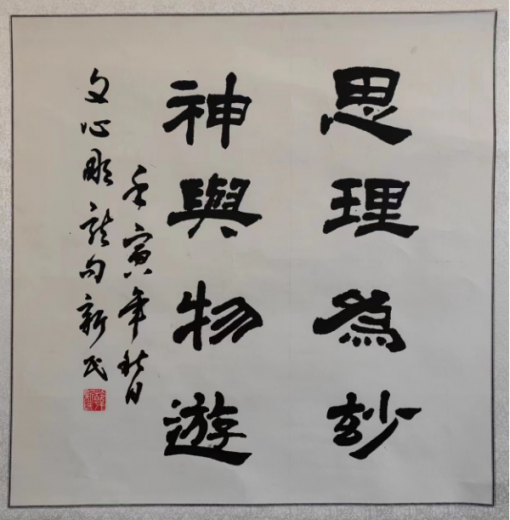 思理為玅
神與物遊
壬寅年秋日
文心雕龍句新民